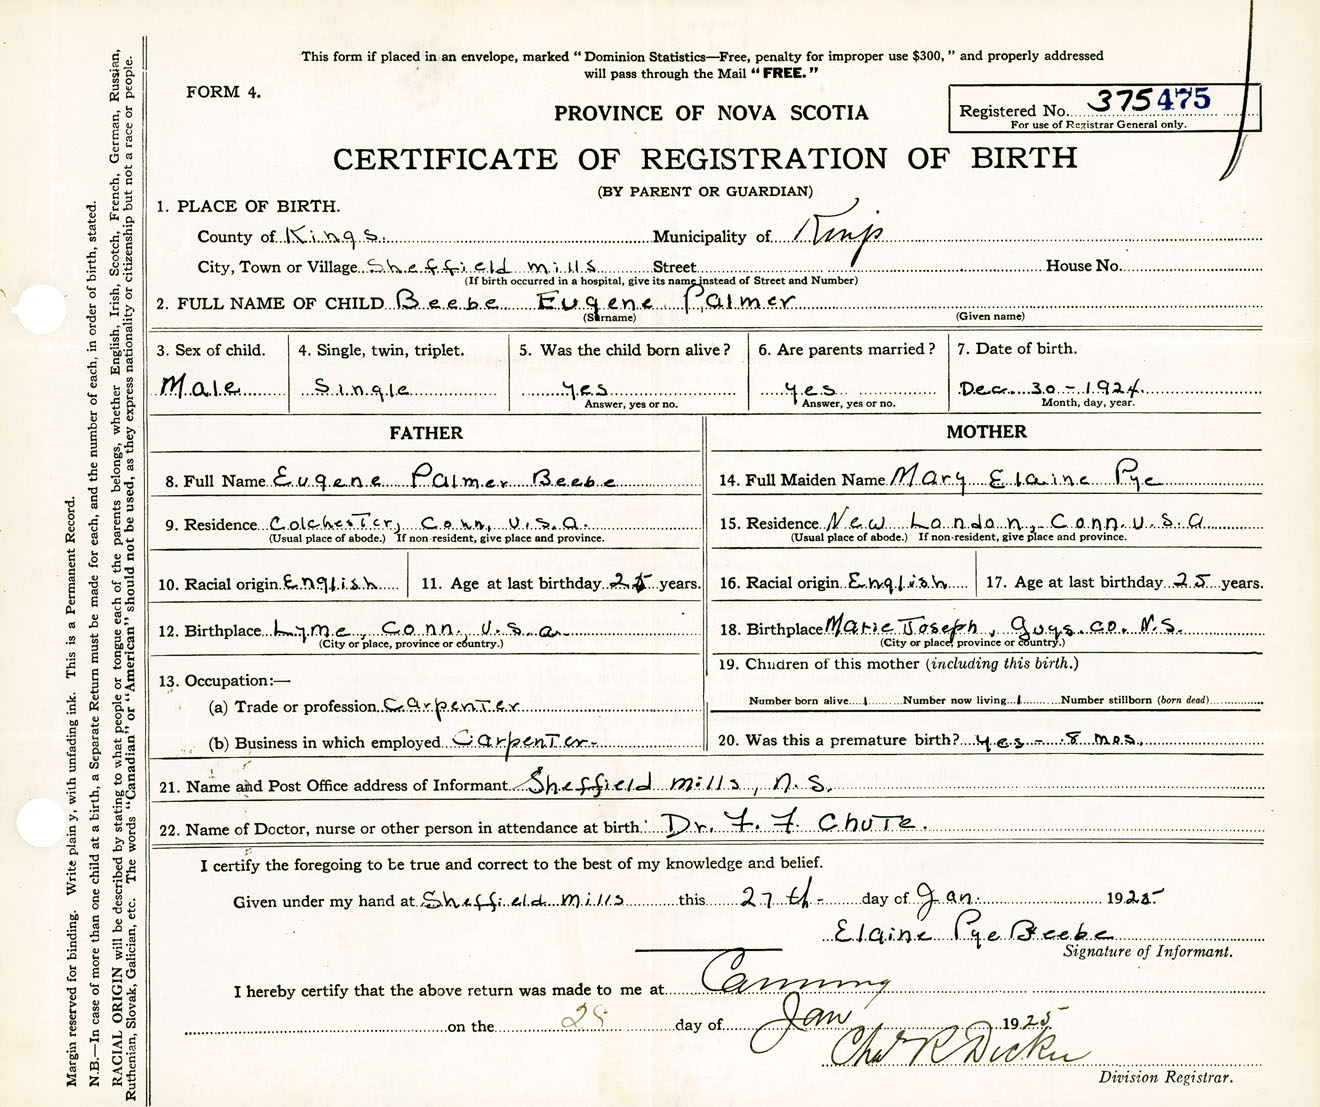 This form if placed in an envelope, marked "Dominion Statistics—Free, penalty for improper use $300," and properly addressed
will pass through the Mail "FREE."
FORM 4.
PROVINCE OF NOVA SCOTIA
Registered No. 375475
For use of Registrar General only.
CERTIFICATE OF REGISTRATION OF BIRTH
(BY PARENT OR GUARDIAN)
1. PLACE OF BIRTH.
County of Kings. Municipality of Kings
City, Town or Village Sheffield Mills Street House No.
(If birth occurred in a hospital, give its name instead of Street and Number)
2. FULL NAME OF CHILD Beebe Eugene Palmer
(Surname) (Given name)
3. Sex of child. 4. Single, twin, triplet. 5. Was the child born alive? 6. Are parents married? 7. Date of birth.
Male Single yes yes Dec. 30 - 1924
Answer, yes or no. Answer, yes or no. Month, day, year.
FATHER MOTHER
8. Full Name Eugene Palmer Beebe 14. Full Maiden Name Mary Elaine Pye
9. Residence Colchester, Conn, U.S.A. 15. Residence New London, Conn. U.S.A
(Usual place of abode.) If non-resident, give place and province. (Usual place of abode.) If non-resident, give place and province.
10. Racial origin English 11. Age at last birthday years. 16. Racial origin English 17. Age at last birthday 25 years.
12. Birthplace Lyme, Conn., U.S.A. 18. Birthplace Marie Joseph, Guys. Co. N.S.
(City or place, province or country.) (City or place, province or country.)
19. Children of this mother (including this birth.)
13. Occupation:—
(a) Trade or profession Carpenter Number born alive 1 Number now living 1 Number stillborn (born dead)
(b) Business in which employed Carpenter- 20. Was this a premature birth? yes - 8 mos.
21. Name and Post Office address of Informant Sheffield Mills, N.S.
22. Name of Doctor, nurse or other person in attendance at birth. Dr. F. F. Chute.
I certify the foregoing to be true and correct to the best of my knowledge and belief.
Given under my hand at Sheffield Mills this 27th- day of Jan. 1925-
Elaine Pye Beebe
Signature of Informant.
I hereby certify that the above return was made to me at Canning
on the day of Jan 1925
Chas R Dickie
Division Registrar.
Margin reserved for binding. Write plainy, with unfading ink. This is a Permanent Record.
N.B.—In case of more than one child at a birth, a Separate Return must be made for each, and the number of each, in order of birth, stated.
RACIAL ORIGIN will be described by stating to what people or tongue each of the parents belongs, whether English, Irish, Scotch, French, German, Russian,
Ruthenian, Slovak, Galician, etc. The words "Canadian" or "American" should not be used, as they express nationality or citizenship but not a race or people.